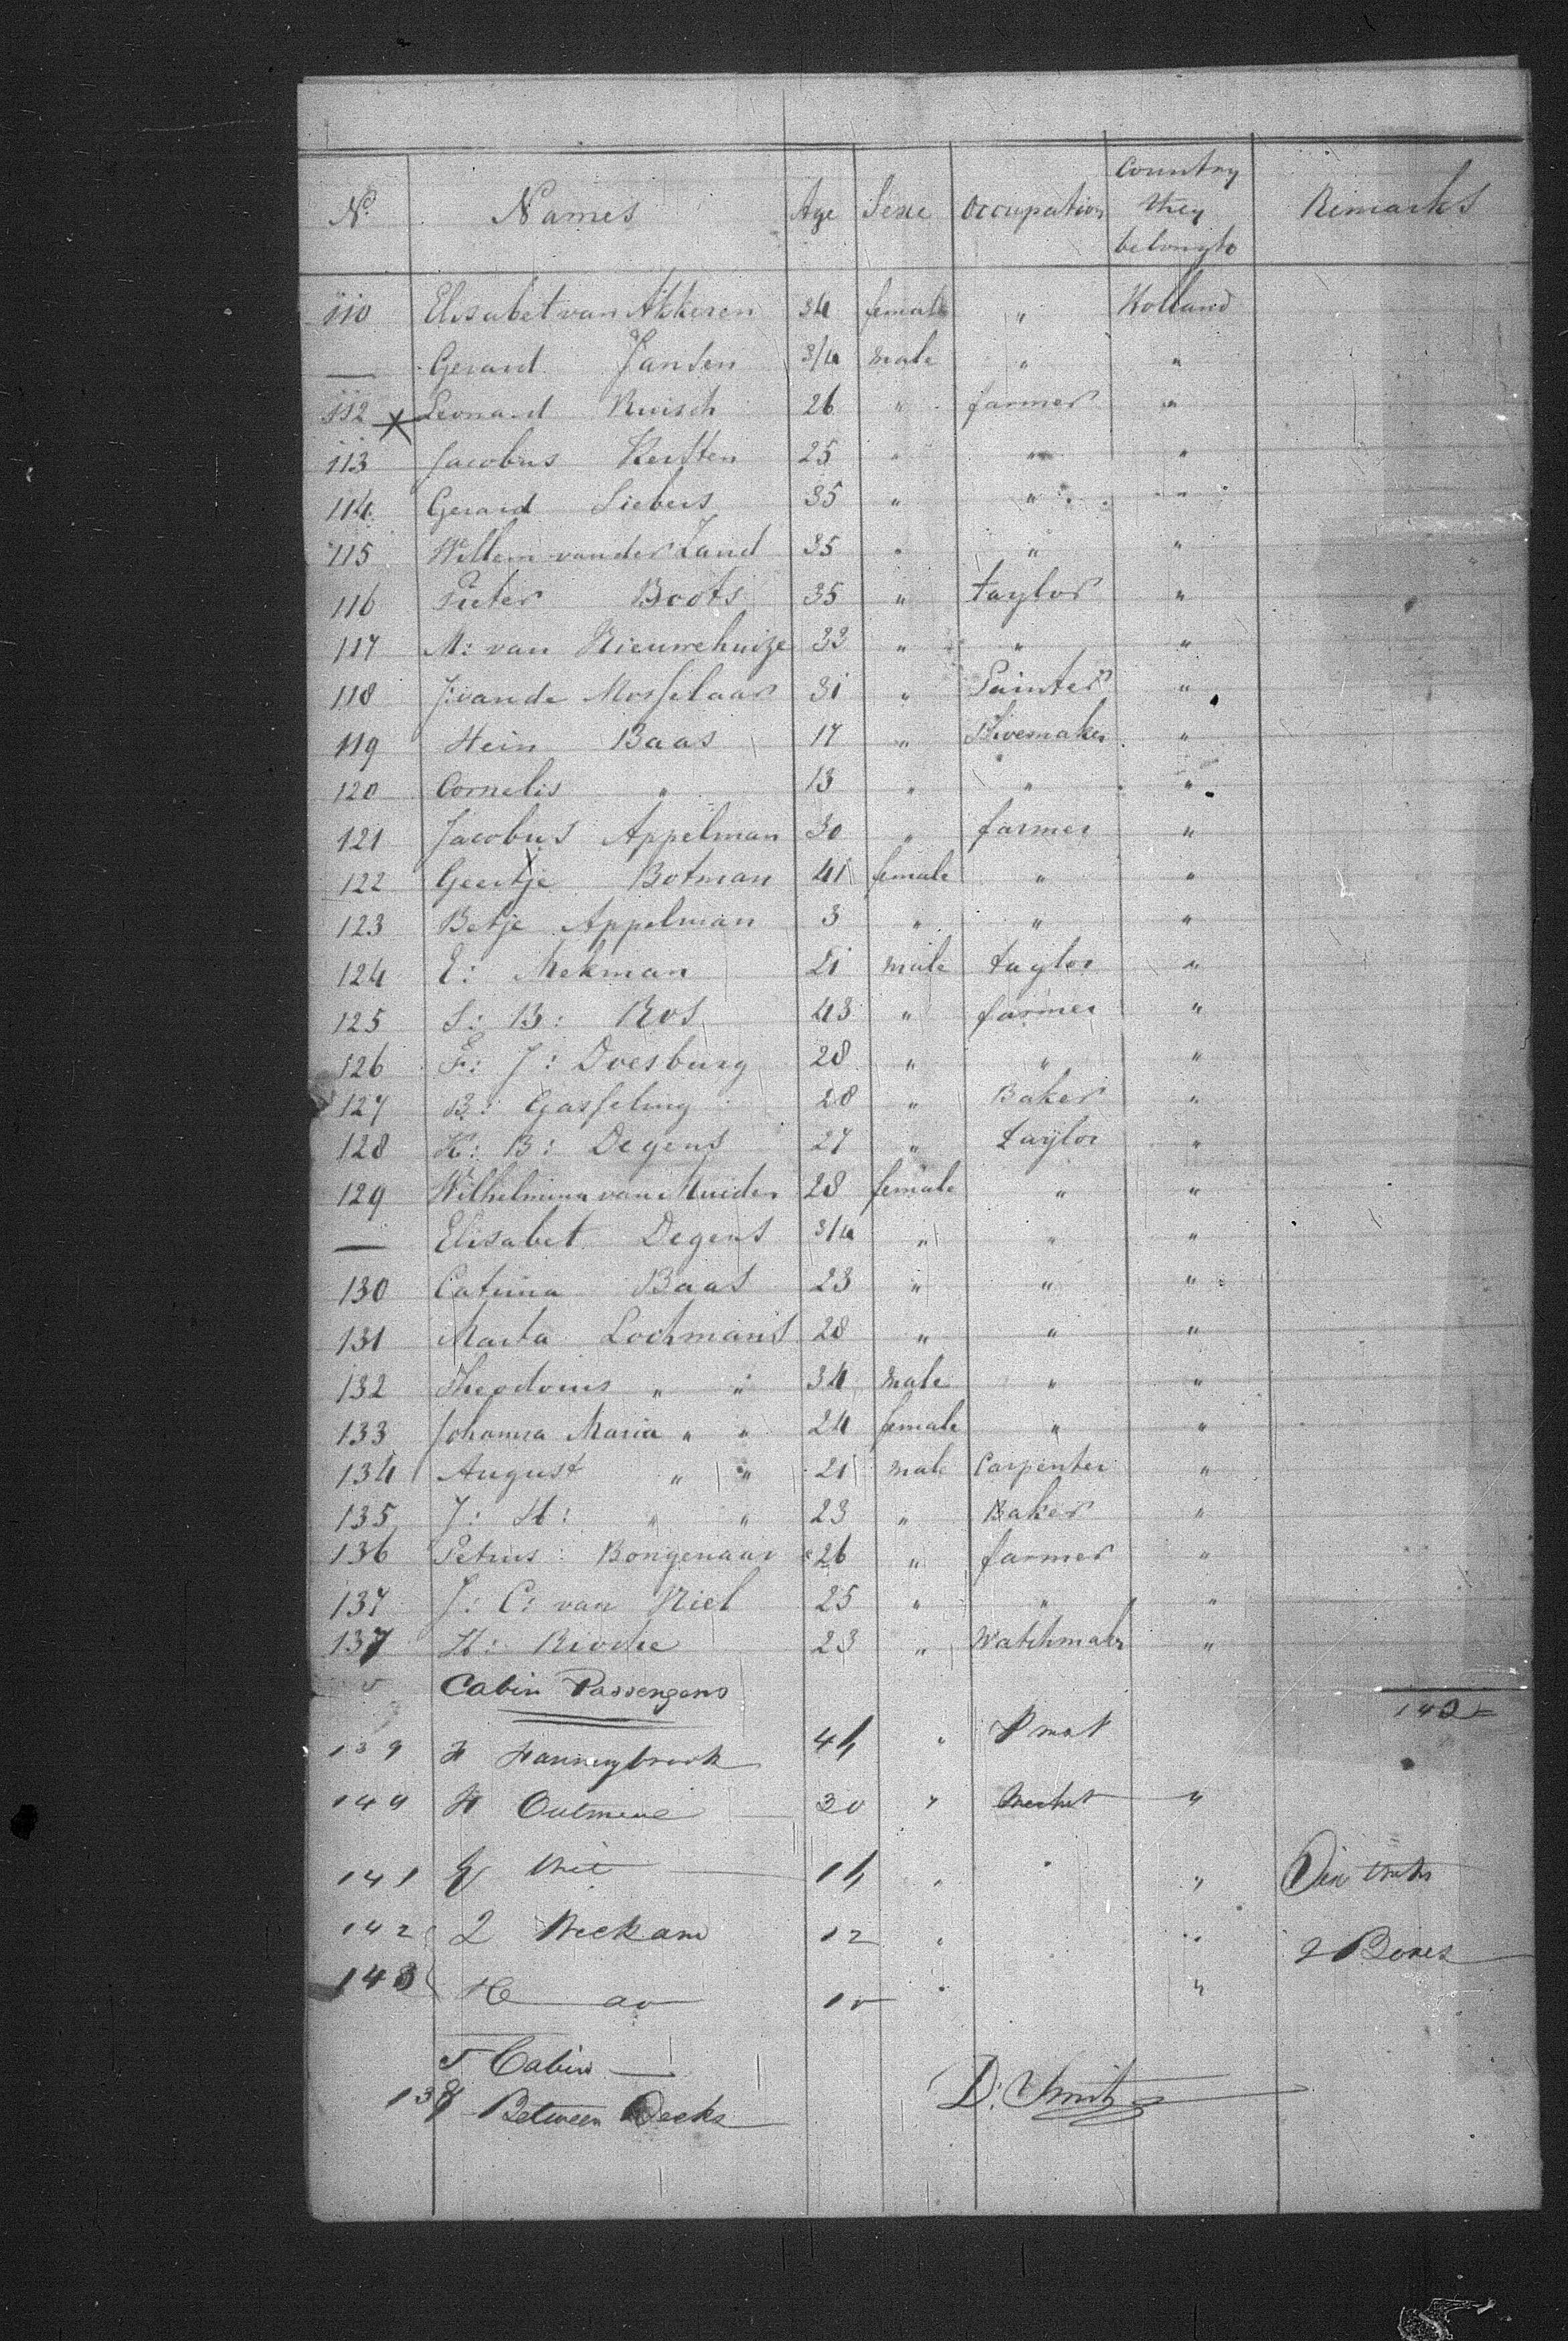 No. Names Age Sexe Occupation Country they belong to Remarks
110 Elisabet van Akkeren 34 female " Holland
— Gerard Jansen 3/4 male " "
112 Leonard Ruisch 26 " farmer "
113 Jacobus Kersten 25 " " "
114 Gerard Siebers 35 " " "
115 Willem van der Zand 35 " " "
116 Pieter Boots 35 " taylor "
117 M: van Nieuwehuize 33 " " "
118 J: van de Mosselaar 31 " Painter "
119 Hein Baas 17 " Shoemaker "
120 Cornelis " 13 " " "
121 Jacobus Appelman 30 " farmer "
122 Geertje Botman 41 female " "
123 Betje Appelman 3 " " "
124 E: Mekman 21 male taylor "
125 S: B: Ros 43 " farmer "
126 F: J: Doesburg 28 " " "
127 B: Gasseling 28 " Baker "
128 H: B: Degens 27 " taylor "
129 Wilhelmina van Muiden 28 female " "
— Elisabet Degens 3/4 " " "
130 Catrina Baas 23 " " "
131 Marta Lochmans 28 " " "
132 Theodorus " " 34 male " "
133 Johanna Maria " " 24 female " "
134 August " " 21 male Carpenter "
135 J: H: " " 23 " Baker "
136 Petrus Bongenaar 26 " farmer "
137 J: C: van Niel 25 " " "
137 H: Rivolie 23 " Watchmaker "
Cabin Passengers
139 H 44 "
140 H 30 " "
141 14 " " "
142 12 " "
143 10 " "
2 Boxes
5 Cabin
138 Between Decks
D. Smit